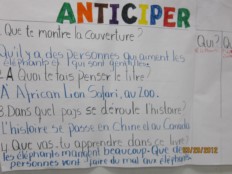 ANTICIPER
1. Que te montre la couverture?
Qu'il y a des personnes qui aiment les
éléphants et qui sont gentilles.
2. À Quoi te fais penser le titre?
A African Lion Safari, au zoo.
3. Dans quel pays se déroule l'histoire?
L'histoire se passe en Chine ou Canada
Que vas-tu apprendre dans ce livre?
les éléphants mangent beaucoup. Que des
personnes vont faire du mal aux éléphants.
Qui?